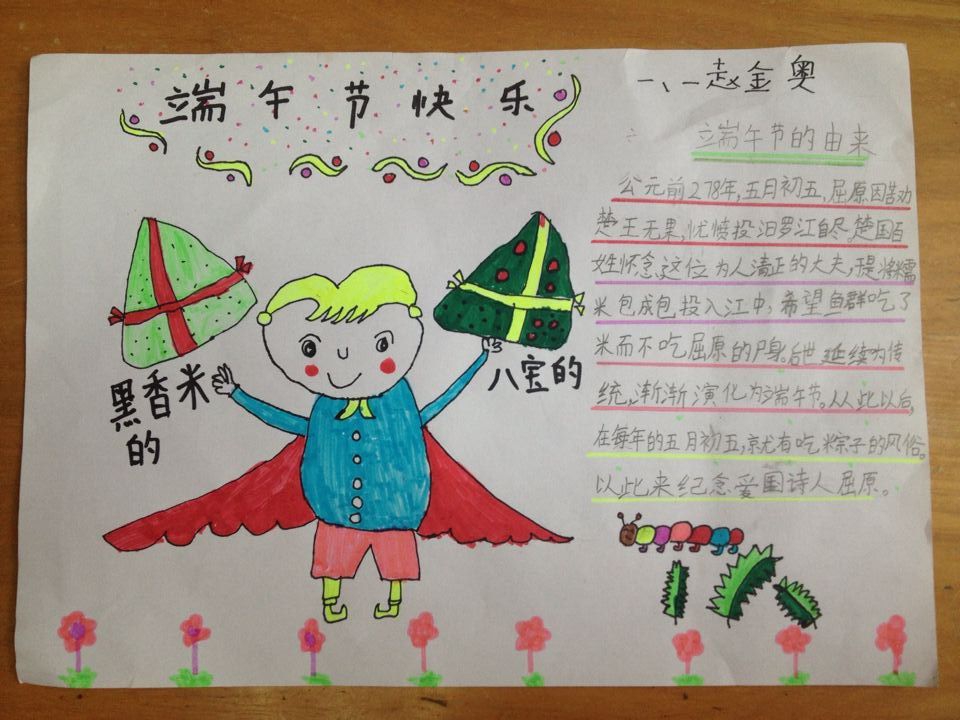 端午节快乐
一、一赵金奥
端午节的由来
公元前278年,五月初五,屈原因苦劝
楚王无果,忧愤投汨罗江自尽。楚国百
姓怀念这位为人清正的大夫,于是将糯
米包成包投入江中,希望鱼群吃了
米而不吃屈原的尸身。后世延续为传
统。渐渐演化为端午节。从此以后,
在每年的五月初五,就有吃粽子的风俗。
以此来纪念爱国诗人屈原。
黑香米
的
八宝的